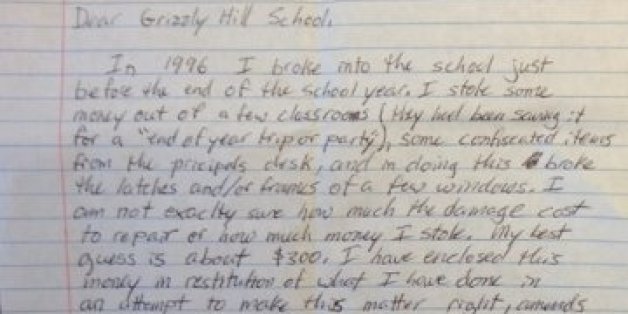 Dear Grizzly Hill School,
In 1996 I broke into the school just
before the end of the school year. I stole some
money out of a few classrooms (they had been saving it
for a "end of year trip or party"), some confiscated items
from the pricipals desk, and in doing this broke
the latches and/or frames of a few windows. I
am not exaclty sure how much the damage cost
to repair or how much money I stole. My best
guess is about $300. I have enclosed this
money in restitution of what I have done in
an attempt to make this matter right, amends